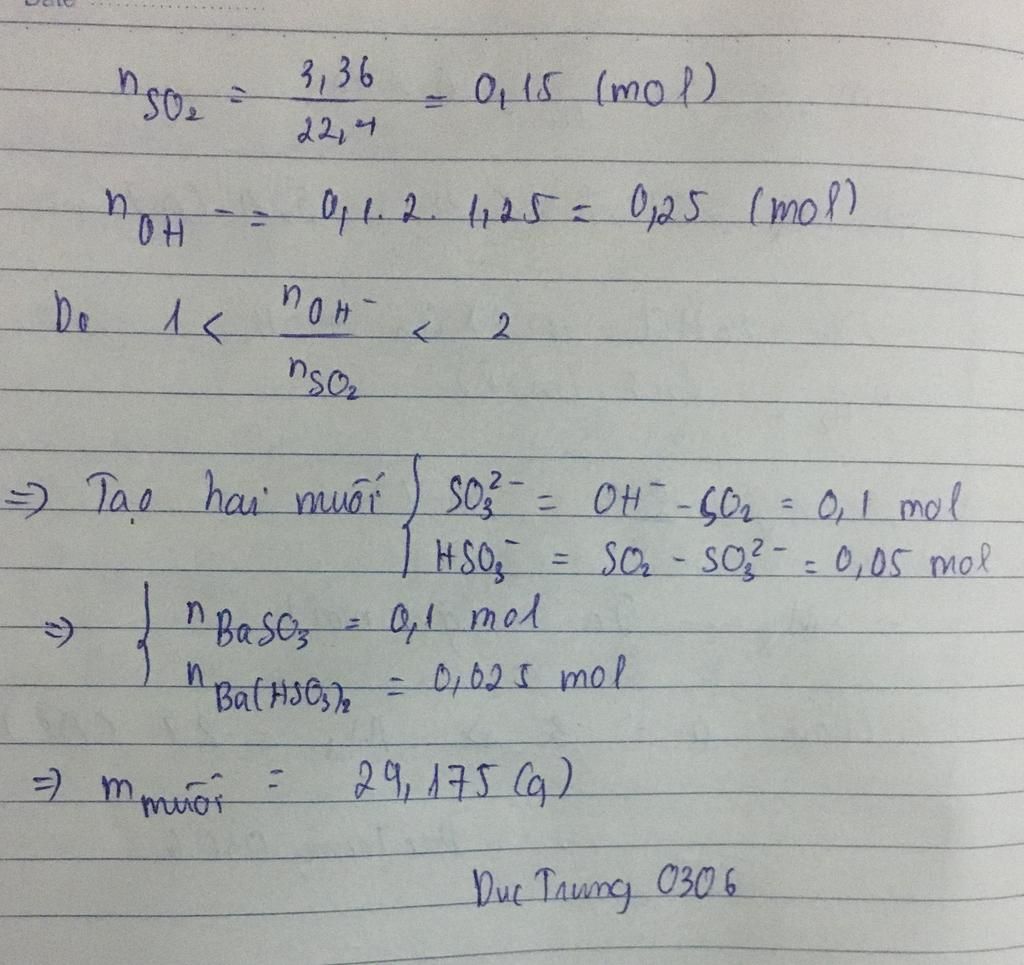 Date
n SO₂ = 3,36 / 22,4 = 0,15 (mol)
n OH⁻ = 0,1. 2. 1,25 = 0,25 (mol)
Do 1 < n OH⁻ / n SO₂ < 2
=> Tạo hai muối { SO₃²⁻ = OH⁻ - SO₂ = 0,1 mol
HSO₃⁻ = SO₂ - SO₃²⁻ = 0,05 mol
=> { n BaSO₃ = 0,1 mol
n Ba(HSO₃)₂ = 0,025 mol
=> m muối = 29,175 (g)
Duc Trung 0306